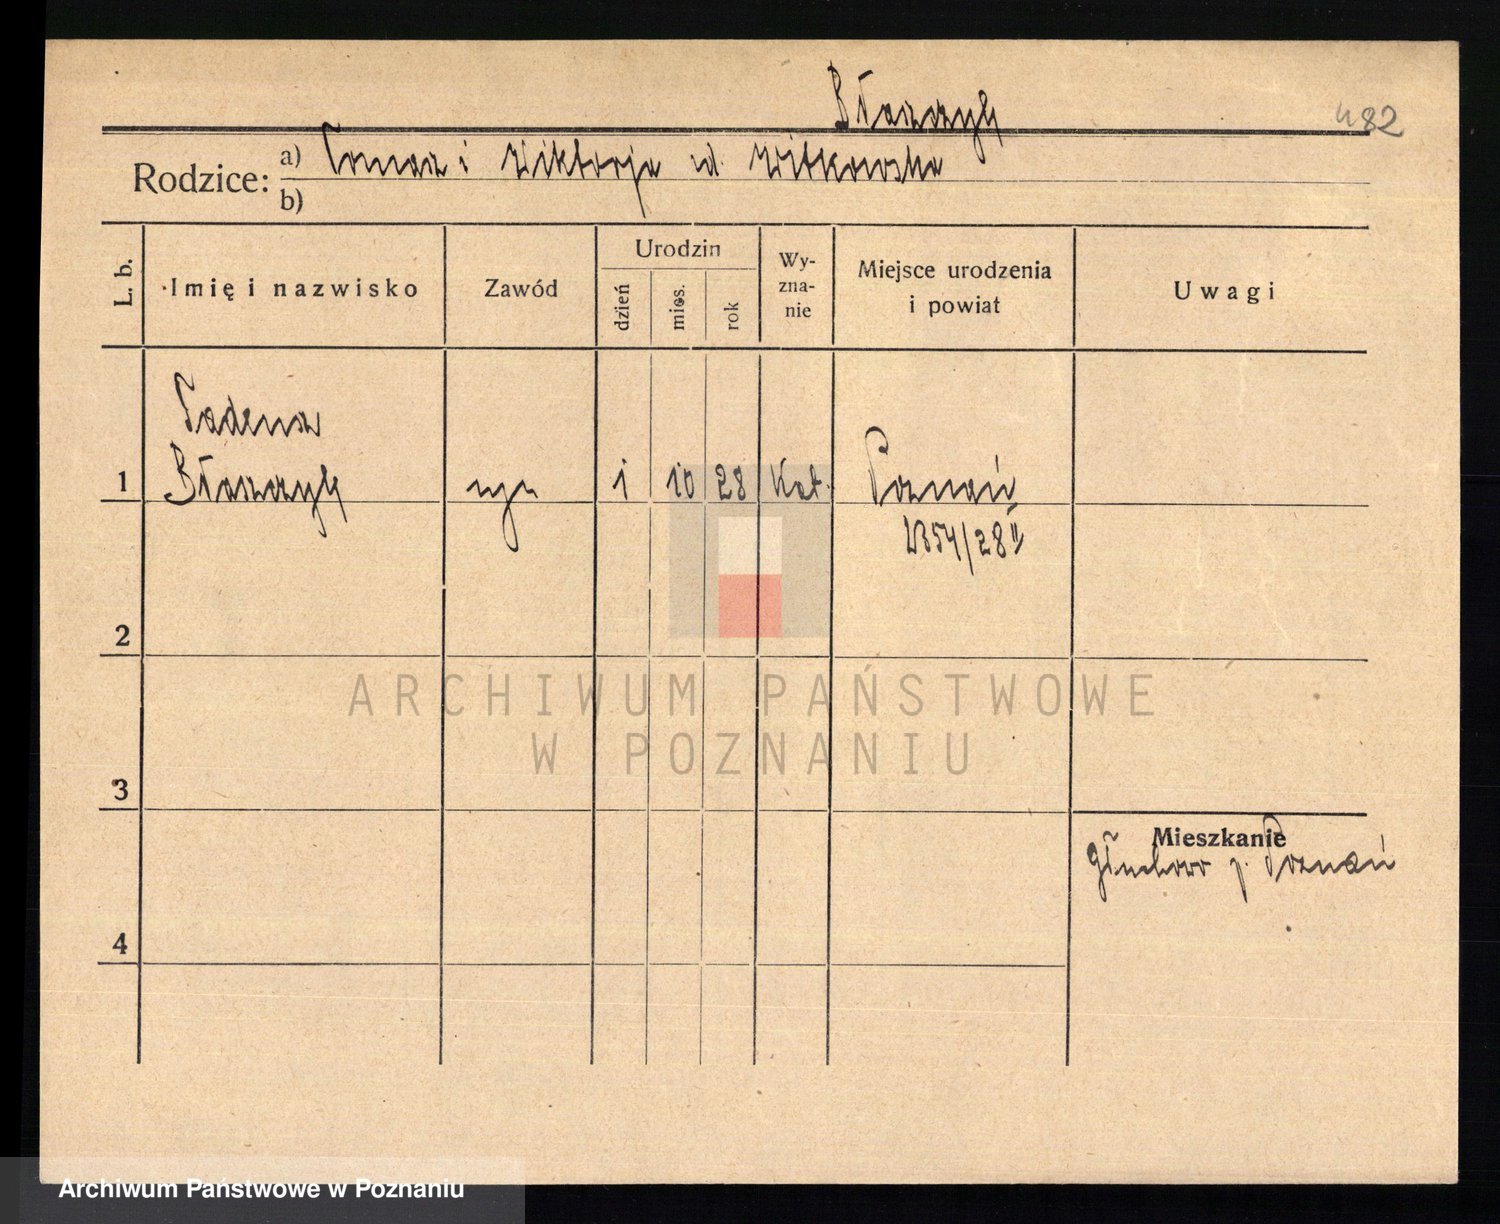 Błaszczyk
482
Rodzice: a) Tomasz i Wiktorja ur. Witkowska
b)
L. b.
Imię i nazwisko
Zawód
Urodzin
dzień
mies.
rok
Wy-
zna-
nie
Miejsce urodzenia
i powiat
Uwagi
Tadeusz
1 Błaszczyk syn 1 10 28 Kat. Poznań
2
ARCHIWUM PAŃSTWOWE
W POZNANIU
3
Mieszkanie
Głuchowo p. Poznań
4
Archiwum Państwowe w Poznaniu